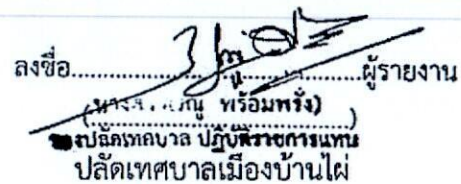 ลงชื่อ........................................ผู้รายงาน
พร้อมพรั่ง)
รองปลัดเทศบาล ปฏิบัติราชการแทน
ปลัดเทศบาลเมืองบ้านไผ่